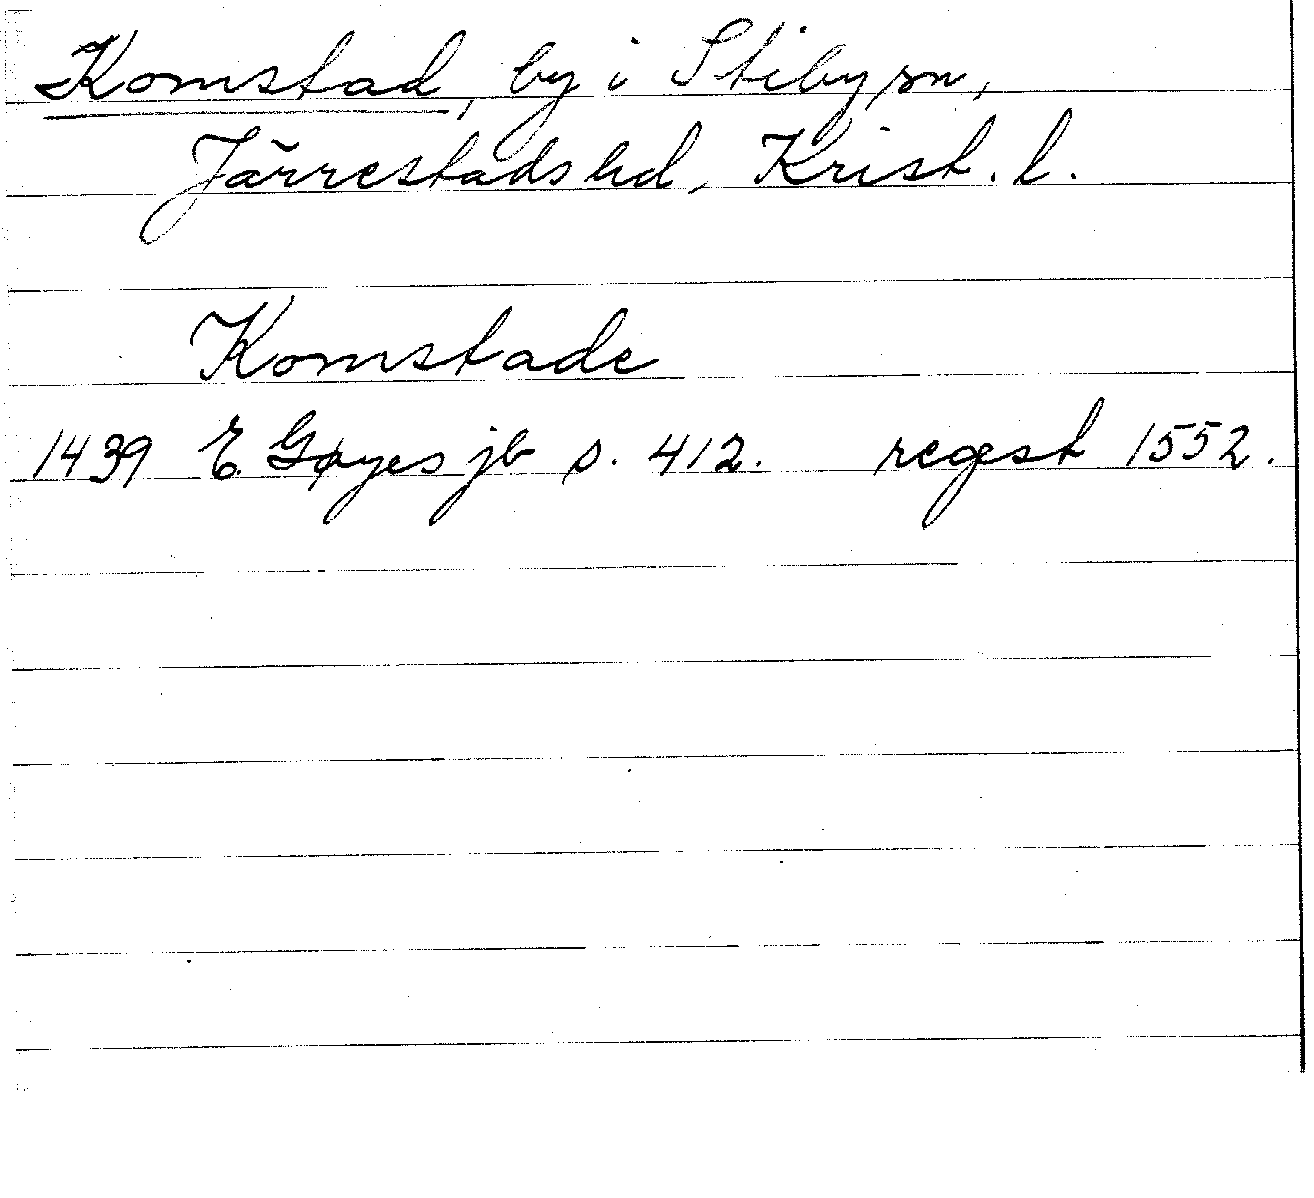 Komstad, by i Stiby sn,
Järrestads hd, Krist. l.
Komstade
1439 E. Gøyes jb s. 412. regest 1552.